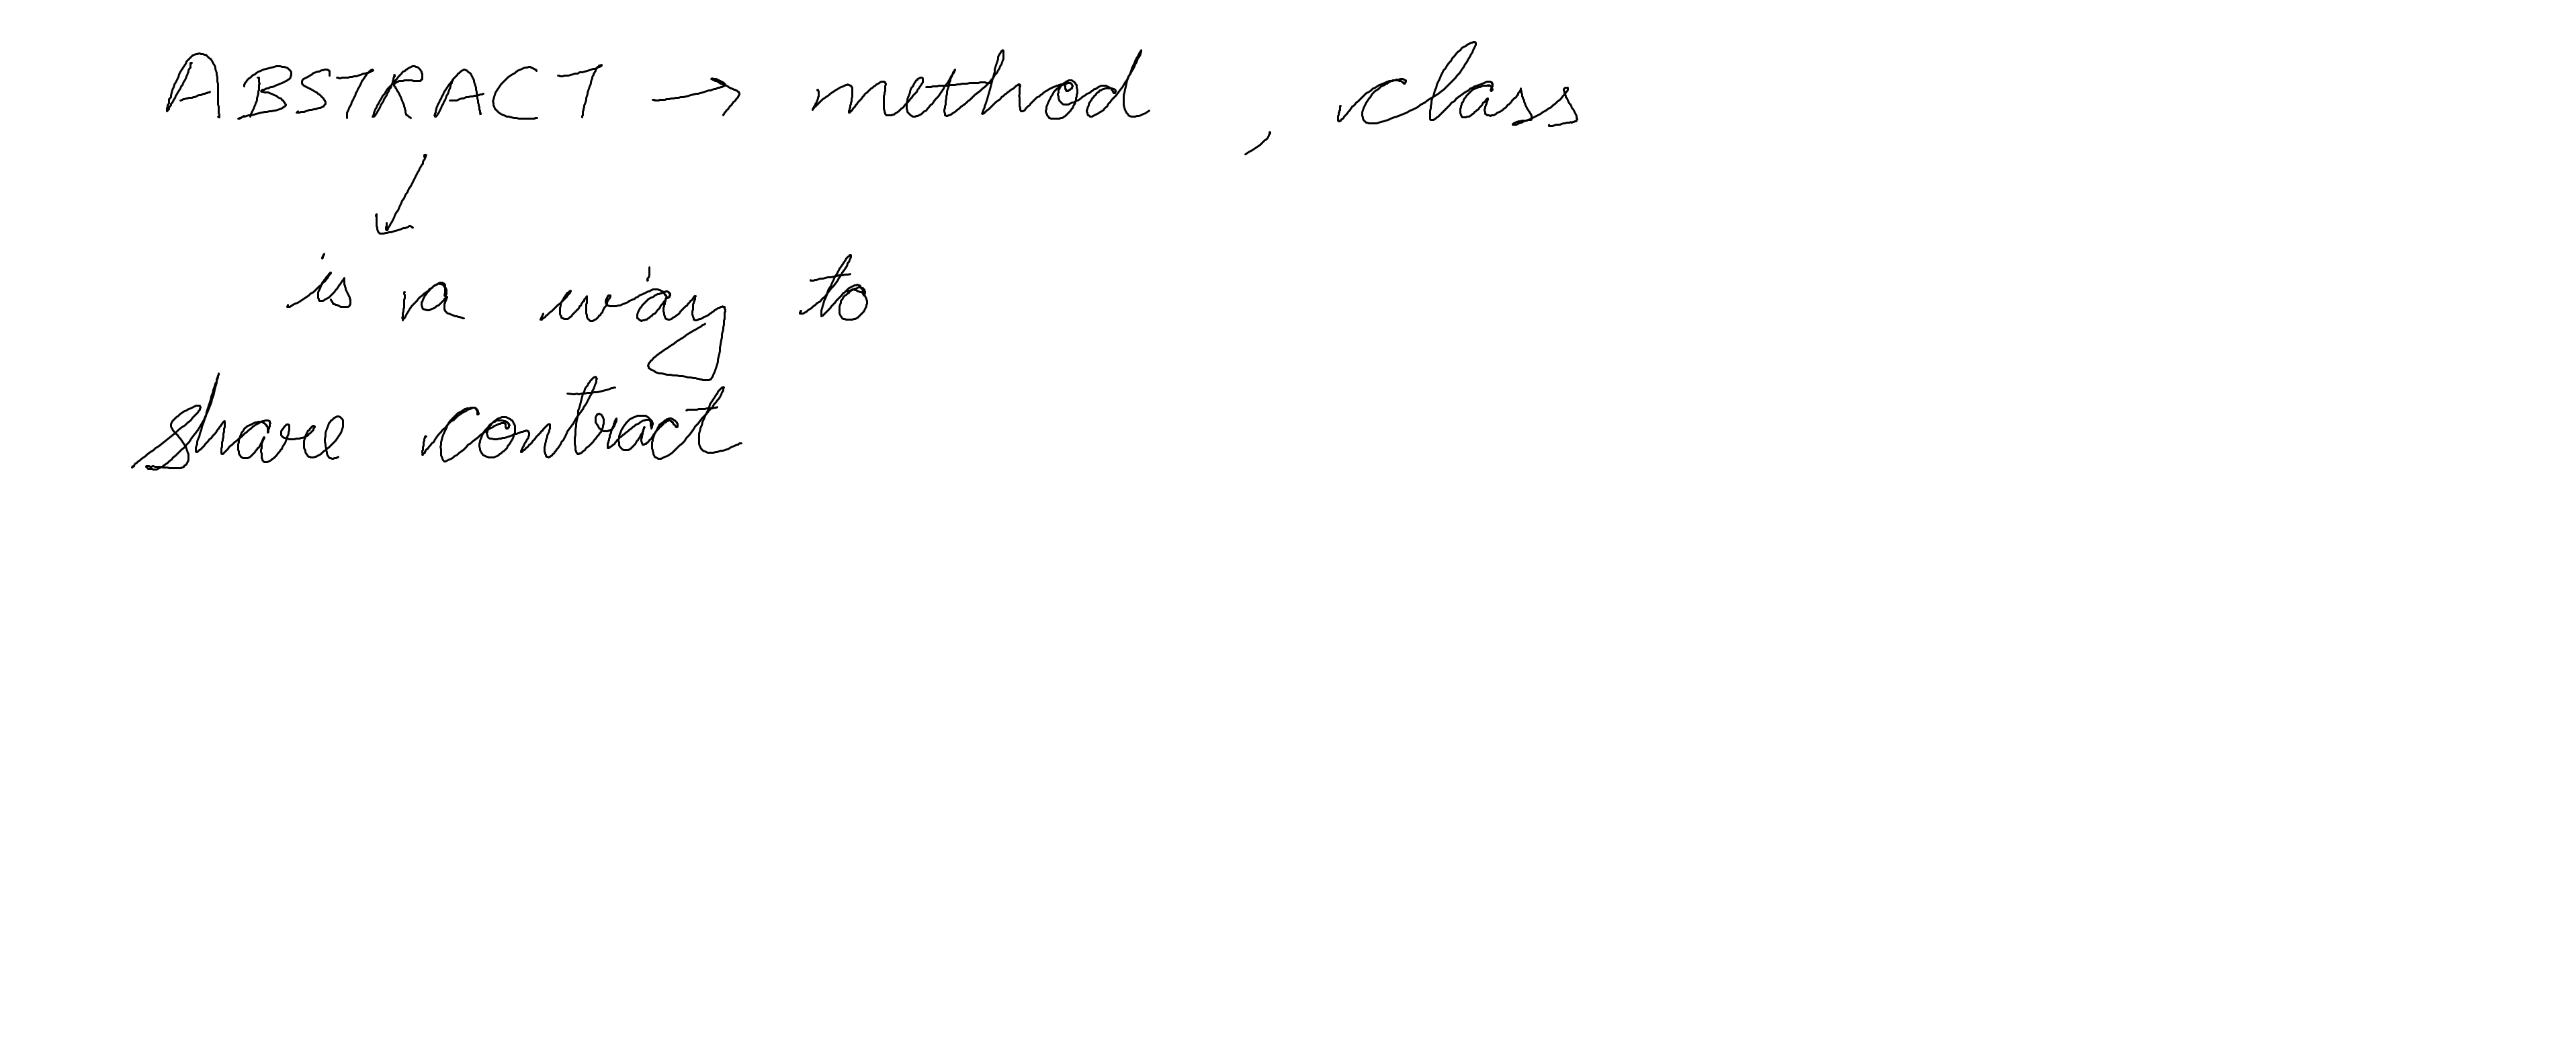 ABSTRACT → method , class
↓
is a way to
share contract